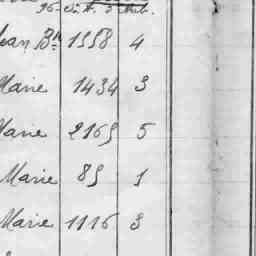 Jean Bte 1558 4
Marie 1434 3
Marie 2169 5
Marie 89 1
Marie 1116 3